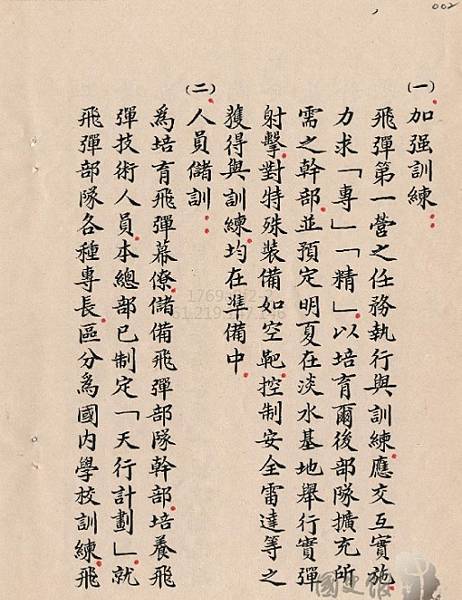 002
(一)加强訓練：
飛彈第一營之任務執行與訓練應交互實施
力求「專」「精」以培育爾後部隊擴充所
需之幹部並預定明夏在淡水基地舉行實彈
射擊對特殊裝備如空靶控制安全雷達等之
獲得與訓練均在準備中
(二)人員儲訓：
爲培育飛彈幕僚儲備飛彈部隊幹部培養飛
彈技術人員本總部已制定「天行計劃」就
飛彈部隊各種專長區分爲國內學校訓練飛
國史館